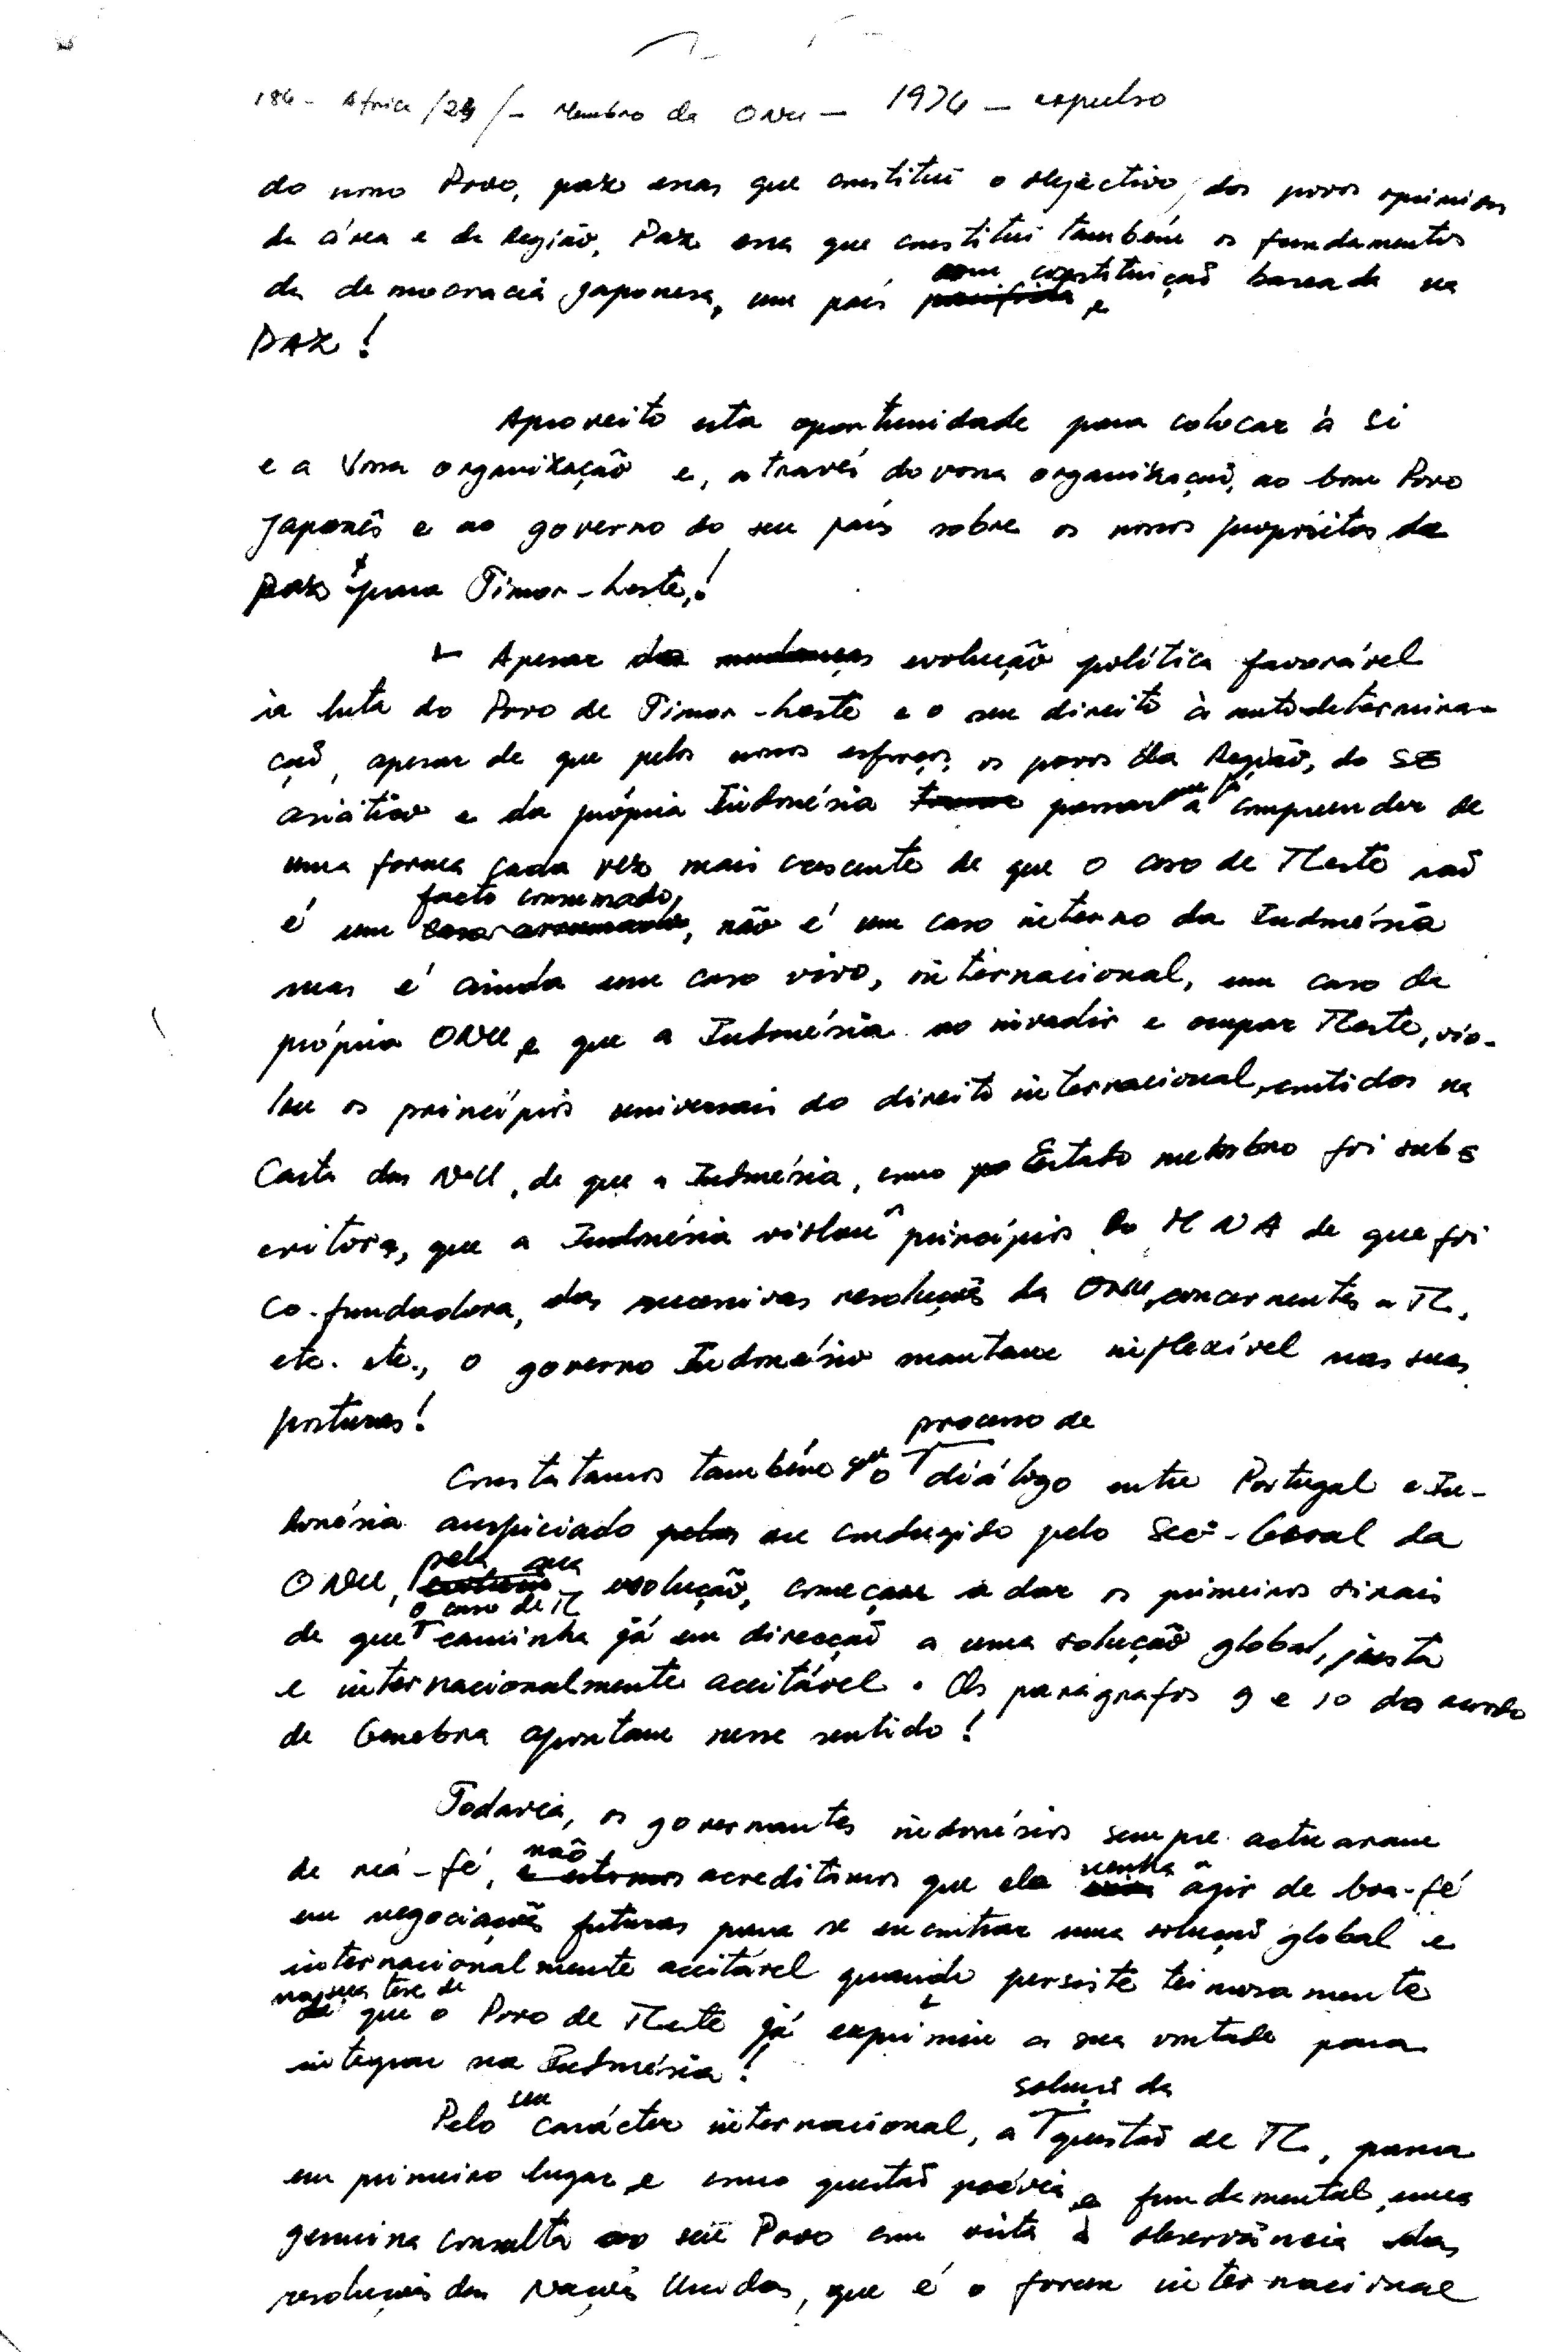 186 - Africa /24/ - Membro da ONU - 1974 - expulso
do nosso Povo, paz essa que constitui o objectivo dos povos oprimidos
da área e da Região, Paz essa que constitui também os fundamentos
da democracia japonesa, um país com constituição baseada na
PAZ!
Aproveito esta oportunidade para colocar à si
e a Vossa organização e, através da vossa organização, ao bom Povo
Japonês e ao governo do seu país sobre os nossos propósitos de
paz para Timor-Leste!
Apesar da mudanças evolução política favorável
à luta do Povo de Timor-Leste e o seu direito à autodetermina-
ção, apesar de que pelos nossos esforços, os povos da Região, do SE
asiático e da própria Indonésia passaram a compreender de
uma forma cada vez mais crescente de que o caso de TLeste não
é um facto consumado, não é um caso interno da Indonésia
mas é ainda um caso vivo, internacional, um caso da
própria ONU e que a Indonésia ao invadir e ocupar TLeste, vio-
lou os princípios universais do direito internacional, contidos na
Carta das NU, de que a Indonésia, como Estado membro foi subs
critora, que a Indonésia violou os princípios do MNA de que foi
co-fundadora, das sucessivas resoluções da ONU, concernentes a TL,
etc. etc., o governo Indonésio mantem inflexível nas suas
posturas!
Constatamos também que o processo de diálogo entre Portugal e In-
donésia auspiciado ou conduzido pelo Sec-Geral da
ONU, pela sua evolução, começam a dar os primeiros sinais
de que o caso de TL caminha já em direcção a uma solução global, justa
e internacionalmente aceitável. Os parágrafos 9 e 10 do acordo
de Genebra apontam nesse sentido!
Todavia, os governantes indonésios sempre actuaram
de má-fé, não acreditamos que ele venha a agir de boa-fé
em negociações futuras para se encontrar uma solução global e
internacionalmente aceitável quando persiste teimosamente
na sua tese de que o Povo de TLeste já exprimiu a sua vontade para
integrar na Indonésia!
Pelo seu carácter internacional, a solução da questão de TL, passa
em primeiro lugar e como questão prévia e fundamental, uma
genuina consulta ao seu Povo com vista à observância das
resoluções das Nações Unidas, que é o forum internacional